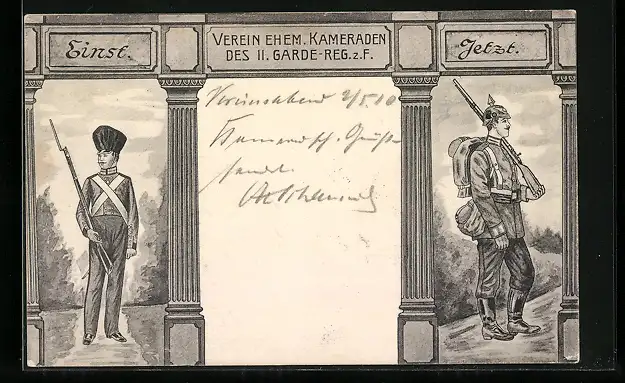 Einst.
VEREIN EHEM. KAMERADEN
DES II. GARDE-REG. z. F.
Jetzt.
Vereinsabend 2/5.10
Kameradsch. Grüße
sendet